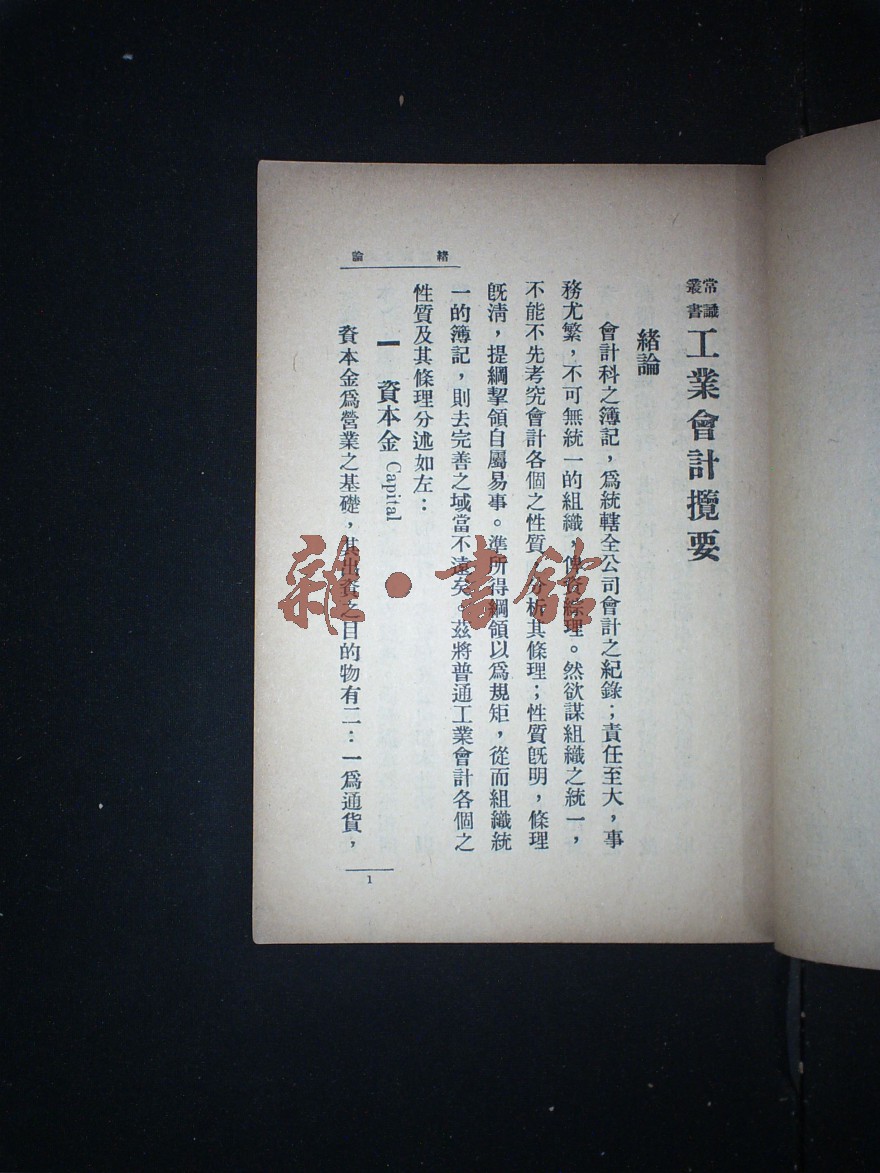 常識叢書
工業會計攬要
緒論
會計科之簿記，爲統轄全公司會計之紀錄；責任至大，事
務尤繁，不可無統一的組織，俾資綜理。然欲謀組織之統一，
不能不先考究會計各個之性質，分析其條理；性質旣明，條理
旣淸，提綱挈領自屬易事。準所得綱領以爲規矩，從而組織統
一的簿記，則去完善之域當不遠矣。茲將普通工業會計各個之
性質及其條理分述如左：
一 資本金 Capital
資本金爲營業之基礎，其出資之目的物有二：一爲通貨，
緒論
1
雜·書館